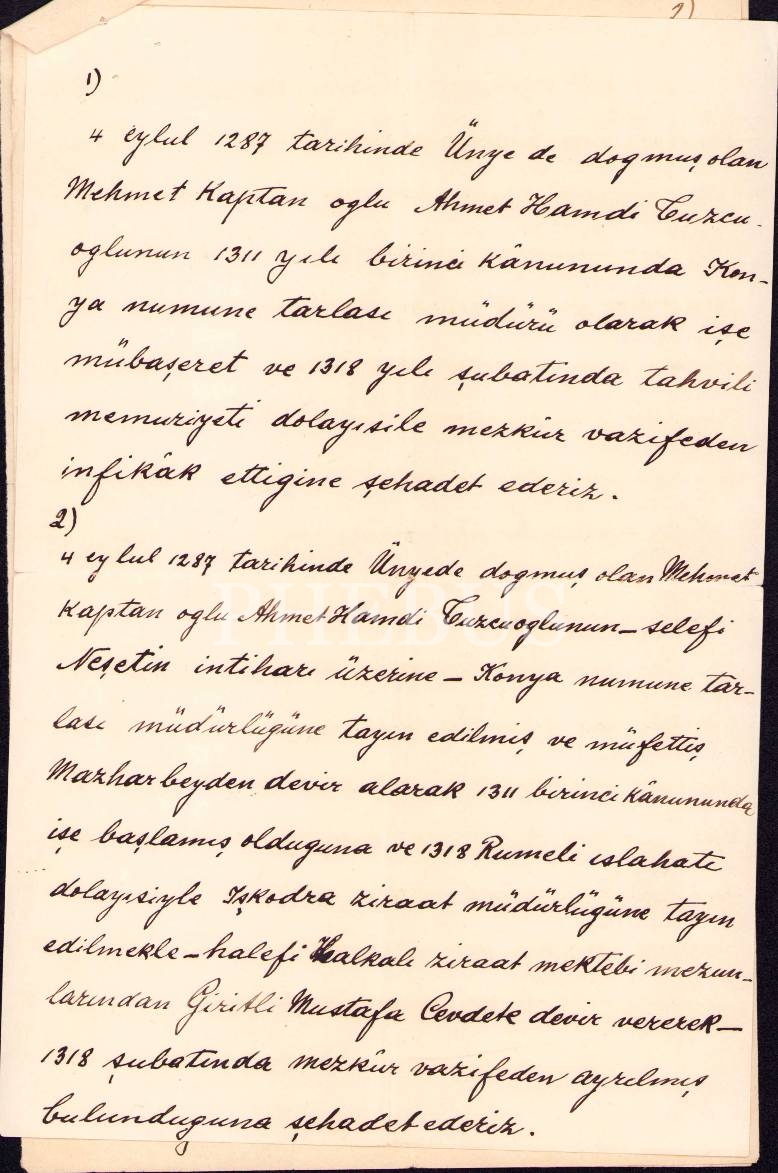 2)
1)
4 eylul 1287 tarihinde Ünye de dogmuş olan
Mehmet Kaptan oglu Ahmet Hamdi Tuzcu-
oglunun 1311 yılı birinci kânununda Kon-
ya numune tarlası müdürü olarak işe
mübaşeret ve 1318 yılı şubatında tahvili
memuriyeti dolayısile mezkûr vazifeden
infikâk ettigine şehadet ederiz.
2)
4 eylul 1287 tarihinde Ünyede dogmuş olan Mehmet
Kaptan oglu Ahmet Hamdi Tuzcuoglunun – selefi
Neşetin intiharı üzerine – Konya numune tar-
lası müdürlügüne tayın edilmiş ve müfettiş
Mazhar beyden devir alarak 1311 birinci kânununda
işe başlamış olduguna ve 1318 Rumeli ıslahatı
dolayısiyle Işkodra ziraat müdürlügüne tayın
edilmekle – halefi Halkalı ziraat mektebi mezun-
larından Giritli Mustafa Cevdete devir vererek –
1318 şubatında mezkûr vazifeden ayrılmış
bulunduguna şehadet ederiz.
PHEBUS